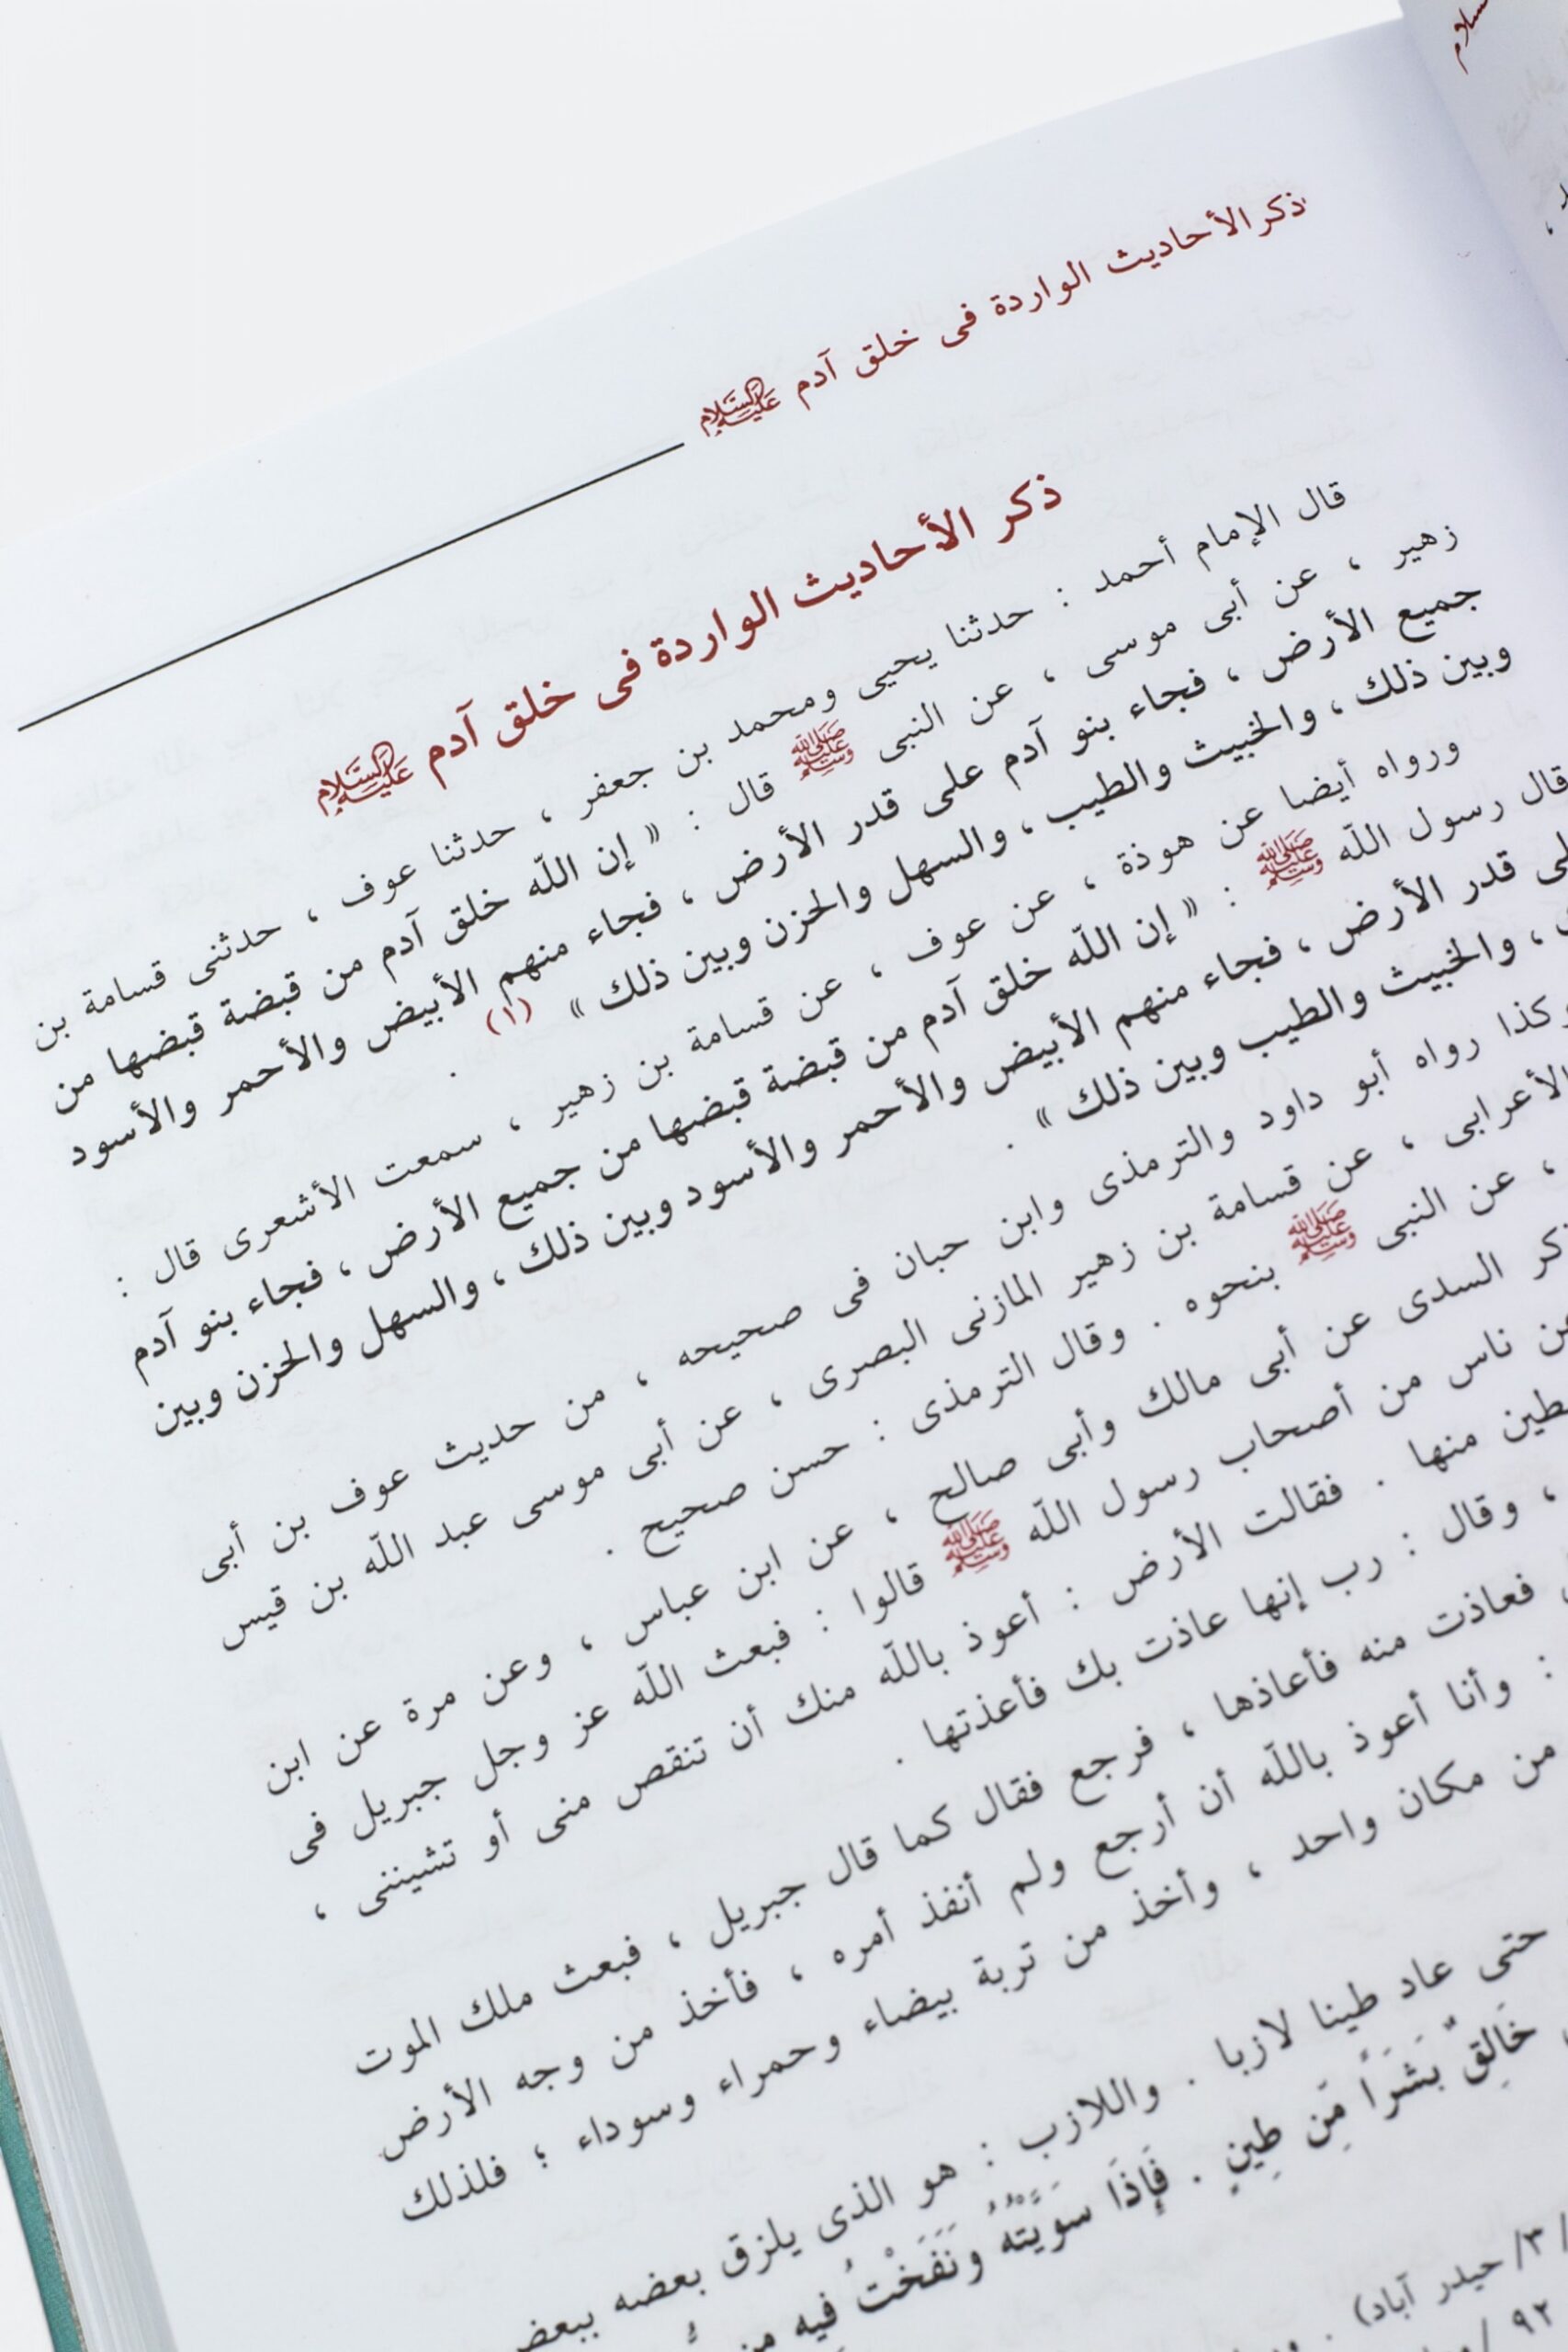 ذكر الأحاديث الواردة فى خلق آدم عليه السلام
ذكر الأحاديث الواردة فى خلق آدم عليه السلام
قال الإمام أحمد : حدثنا يحيى ومحمد بن جعفر ، حدثنا عوف ، حدثنى قسامة بن
زهير ، عن أبى موسى ، عن النبى ﷺ قال : « إن اللّه خلق آدم من قبضة قبضها من
جميع الأرض ، فجاء بنو آدم على قدر الأرض ، فجاء منهم الأبيض والأحمر والأسود
وبين ذلك ، والخبيث والطيب ، والسهل والحزن وبين ذلك » (١) .
ورواه أيضا عن هوذة ، عن عوف ، عن قسامة بن زهير ، سمعت الأشعرى قال :
قال رسول اللّه ﷺ : « إن اللّه خلق آدم من قبضة قبضها من جميع الأرض ، فجاء بنو آدم
قدر الأرض ، فجاء منهم الأبيض والأحمر والأسود وبين ذلك ، والسهل والحزن وبين
، والخبيث والطيب وبين ذلك » .
وكذا رواه أبو داود والترمذى وابن حبان فى صحيحه ، من حديث عوف بن أبى
الأعرابى ، عن قسامة بن زهير المازنى البصرى ، عن أبى موسى عبد اللّه بن قيس
، عن النبى ﷺ بنحوه . وقال الترمذى : حسن صحيح .
السدى عن أبى مالك وأبى صالح ، عن ابن عباس ، وعن مرة عن ابن
عن ناس من أصحاب رسول اللّه ﷺ قالوا : فبعث اللّه عز وجل جبريل فى
بطين منها . فقالت الأرض : أعوذ باللّه منك أن تنقص منى أو تشيننى ،
، وقال : رب إنها عاذت بك فأعذتها .
فعاذت منه فأعاذها ، فرجع فقال كما قال جبريل ، فبعث ملك الموت
: وأنا أعوذ باللّه أن أرجع ولم أنفذ أمره ، فأخذ من وجه الأرض
من مكان واحد ، وأخذ من تربة بيضاء وحمراء وسوداء ؛ فلذلك
حتى عاد طينا لازبا . واللازب : هو الذى يلزق بعضه ببعض
خَالِقٌ بَشَرًا مِّن طِينٍ . فَإِذَا سَوَّيْتُهُ وَنَفَخْتُ فِيهِ مِن
/٣/ حيدر آباد) .
٩٢